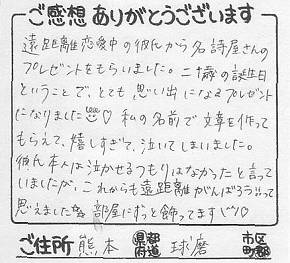 ご感想ありがとうございます
遠距離恋愛中の彼氏から名詩屋さんの
プレゼントをもらいました。二十歳の誕生日
ということで、とても思い出になるプレゼント
になりました♡ 私の名前で文章を作って
もらえて、嬉しすぎて、泣いてしまいました。
彼氏本人は泣かせるつもりはなかったと言って
いましたが、これからも遠距離がんばろうって
思えました☆ 部屋にずっと飾ってます♡
ご住所 熊本 都道府県 球磨 市区町郡